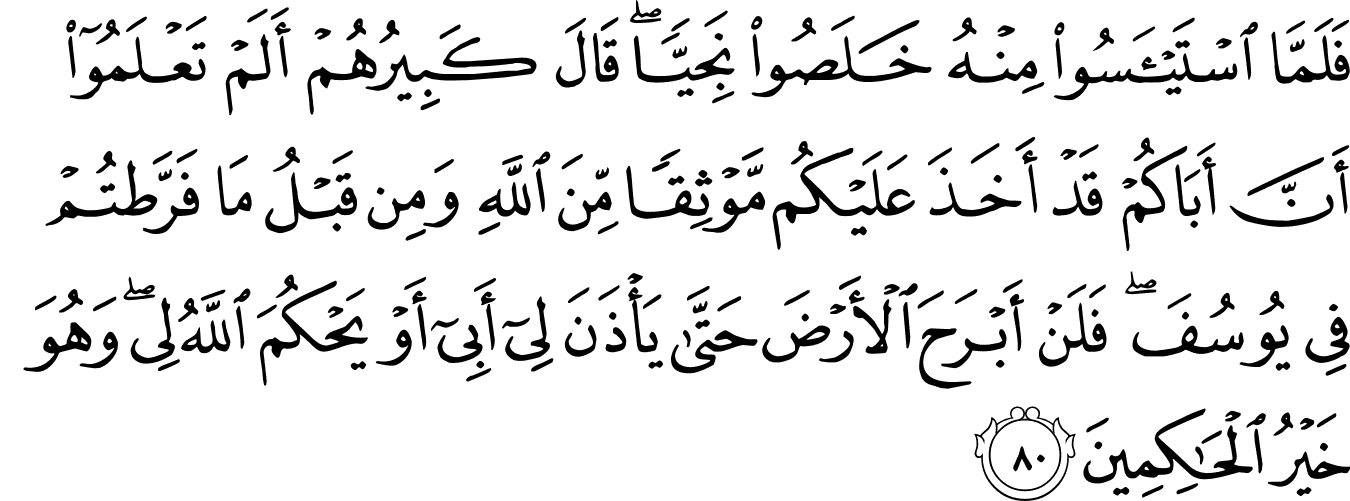 فَلَمَّا ٱسْتَيْـَٔسُوا۟ مِنْهُ خَلَصُوا۟ نَجِيًّا ۖ قَالَ كَبِيرُهُمْ أَلَمْ تَعْلَمُوٓا۟
أَنَّ أَبَاكُمْ قَدْ أَخَذَ عَلَيْكُم مَّوْثِقًا مِّنَ ٱللَّهِ وَمِن قَبْلُ مَا فَرَّطتُمْ
فِي يُوسُفَ ۖ فَلَنْ أَبْرَحَ ٱلْأَرْضَ حَتَّىٰ يَأْذَنَ لِيٓ أَبِيٓ أَوْ يَحْكُمَ ٱللَّهُ لِي ۖ وَهُوَ
خَيْرُ ٱلْحَـٰكِمِينَ ٨٠